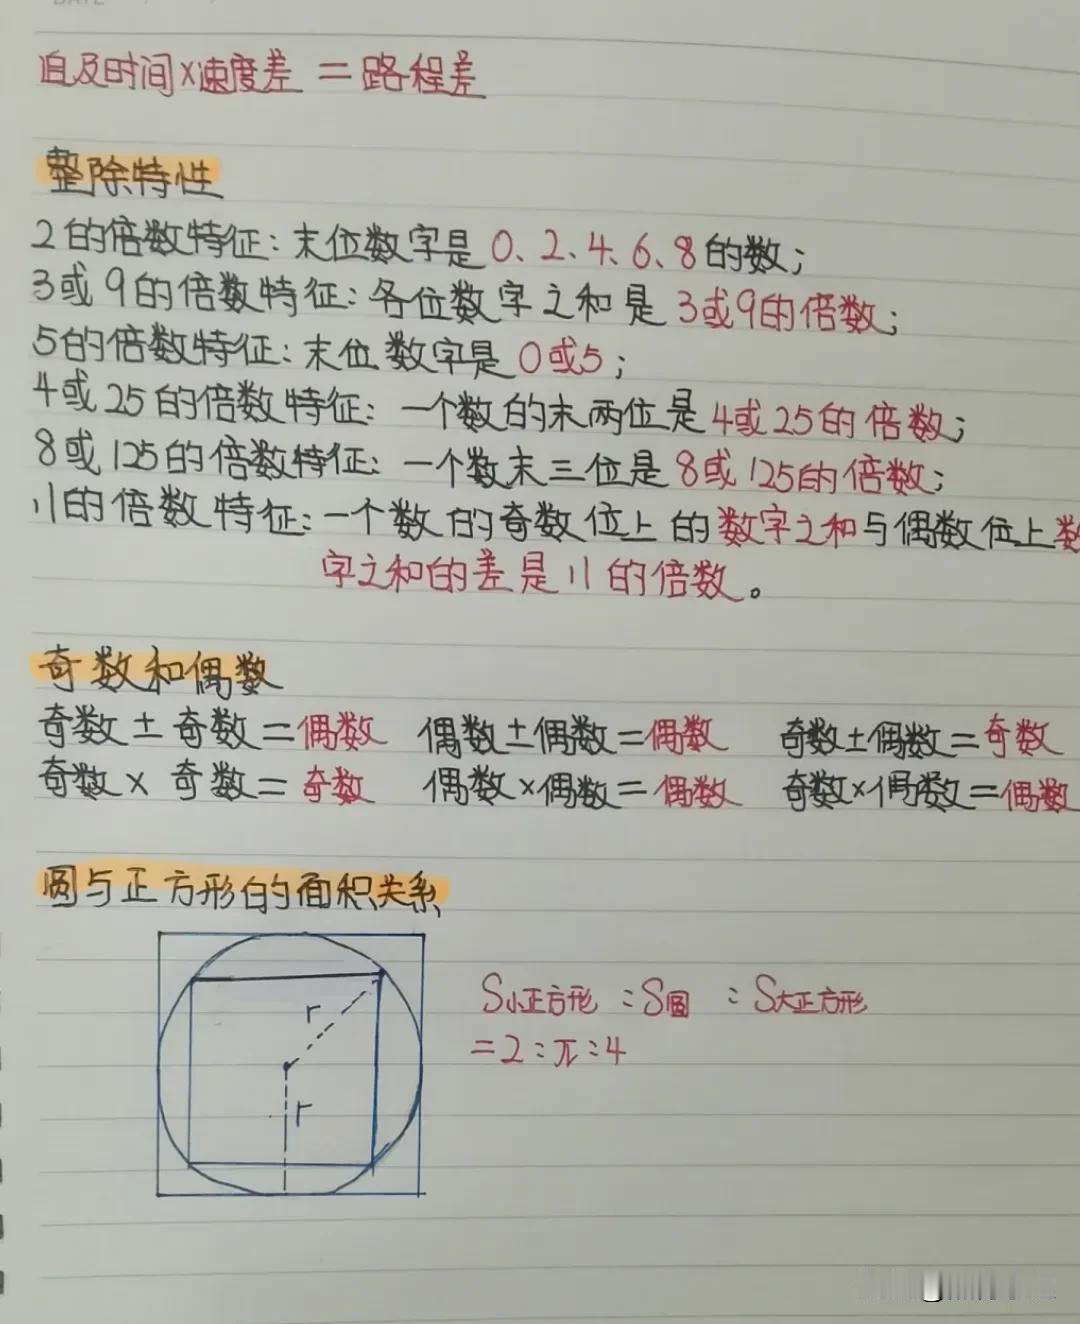 DATE
追及时间×速度差=路程差
整除特性
2的倍数特征:末位数字是0、2、4、6、8的数;
3或9的倍数特征:各位数字之和是3或9的倍数;
5的倍数特征:末位数字是0或5;
4或25的倍数特征:一个数的末两位是4或25的倍数;
8或125的倍数特征:一个数末三位是8或125的倍数;
11的倍数特征:一个数的奇数位上的数字之和与偶数位上数
字之和的差是11的倍数。
奇数和偶数
奇数±奇数=偶数 偶数±偶数=偶数 奇数±偶数=奇数
奇数×奇数=奇数 偶数×偶数=偶数 奇数×偶数=偶数
圆与正方形的面积关系
r
r
S小正方形:S圆:S大正方形
=2:π:4